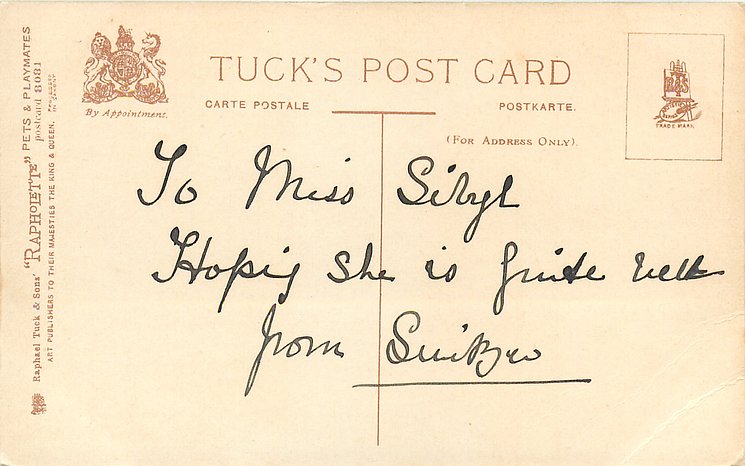 TUCK'S POST CARD
CARTE POSTALE
POSTKARTE.
(FOR ADDRESS ONLY).
By Appointment.
TRADE MARK
To Miss Sibyl
Hoping she is quite well
from
Raphael Tuck & Sons' "RAPHOLETTE" PETS & PLAYMATES
postcard 8081
ART PUBLISHERS TO THEIR MAJESTIES THE KING & QUEEN.